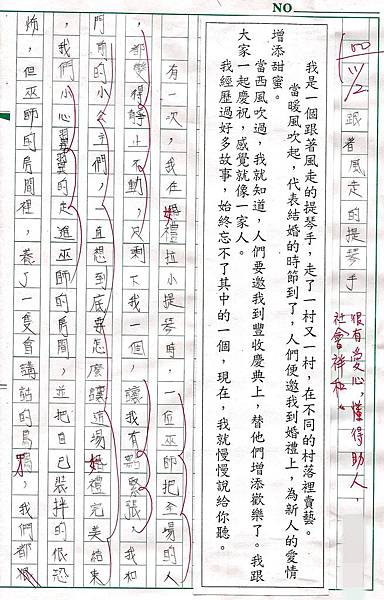 NO
100/11/2
跟著風走的提琴手
很有愛心，懂得助人，
社會祥和。
我是一個跟著風走的提琴手，走了一村又一村，在不同的村落裡賣藝。
當暖風吹起，代表結婚的時節到了，人們便邀我到婚禮上，為新人的愛情
增添甜蜜。
當西風吹過，我就知道，人們要邀我到豐收慶典上，替他們增添歡樂了。我跟
大家一起慶祝，感覺就像一家人。
我經歷過好多故事，始終忘不了其中的一個，現在，我就慢慢說給你聽。
有一次，我在婚禮拉小提琴時，一位巫師把全場的人
，都變得靜止不動，只剩下我一個，讓我有點緊張，我和
門前的小公主們，直想到底要怎麼讓這場婚禮完美結束
，我們小心翼翼的走進巫師的房間，並把自己裝拌的很恐
怖，但巫師的房間裡，養了一隻會講話的烏鴉，我們都